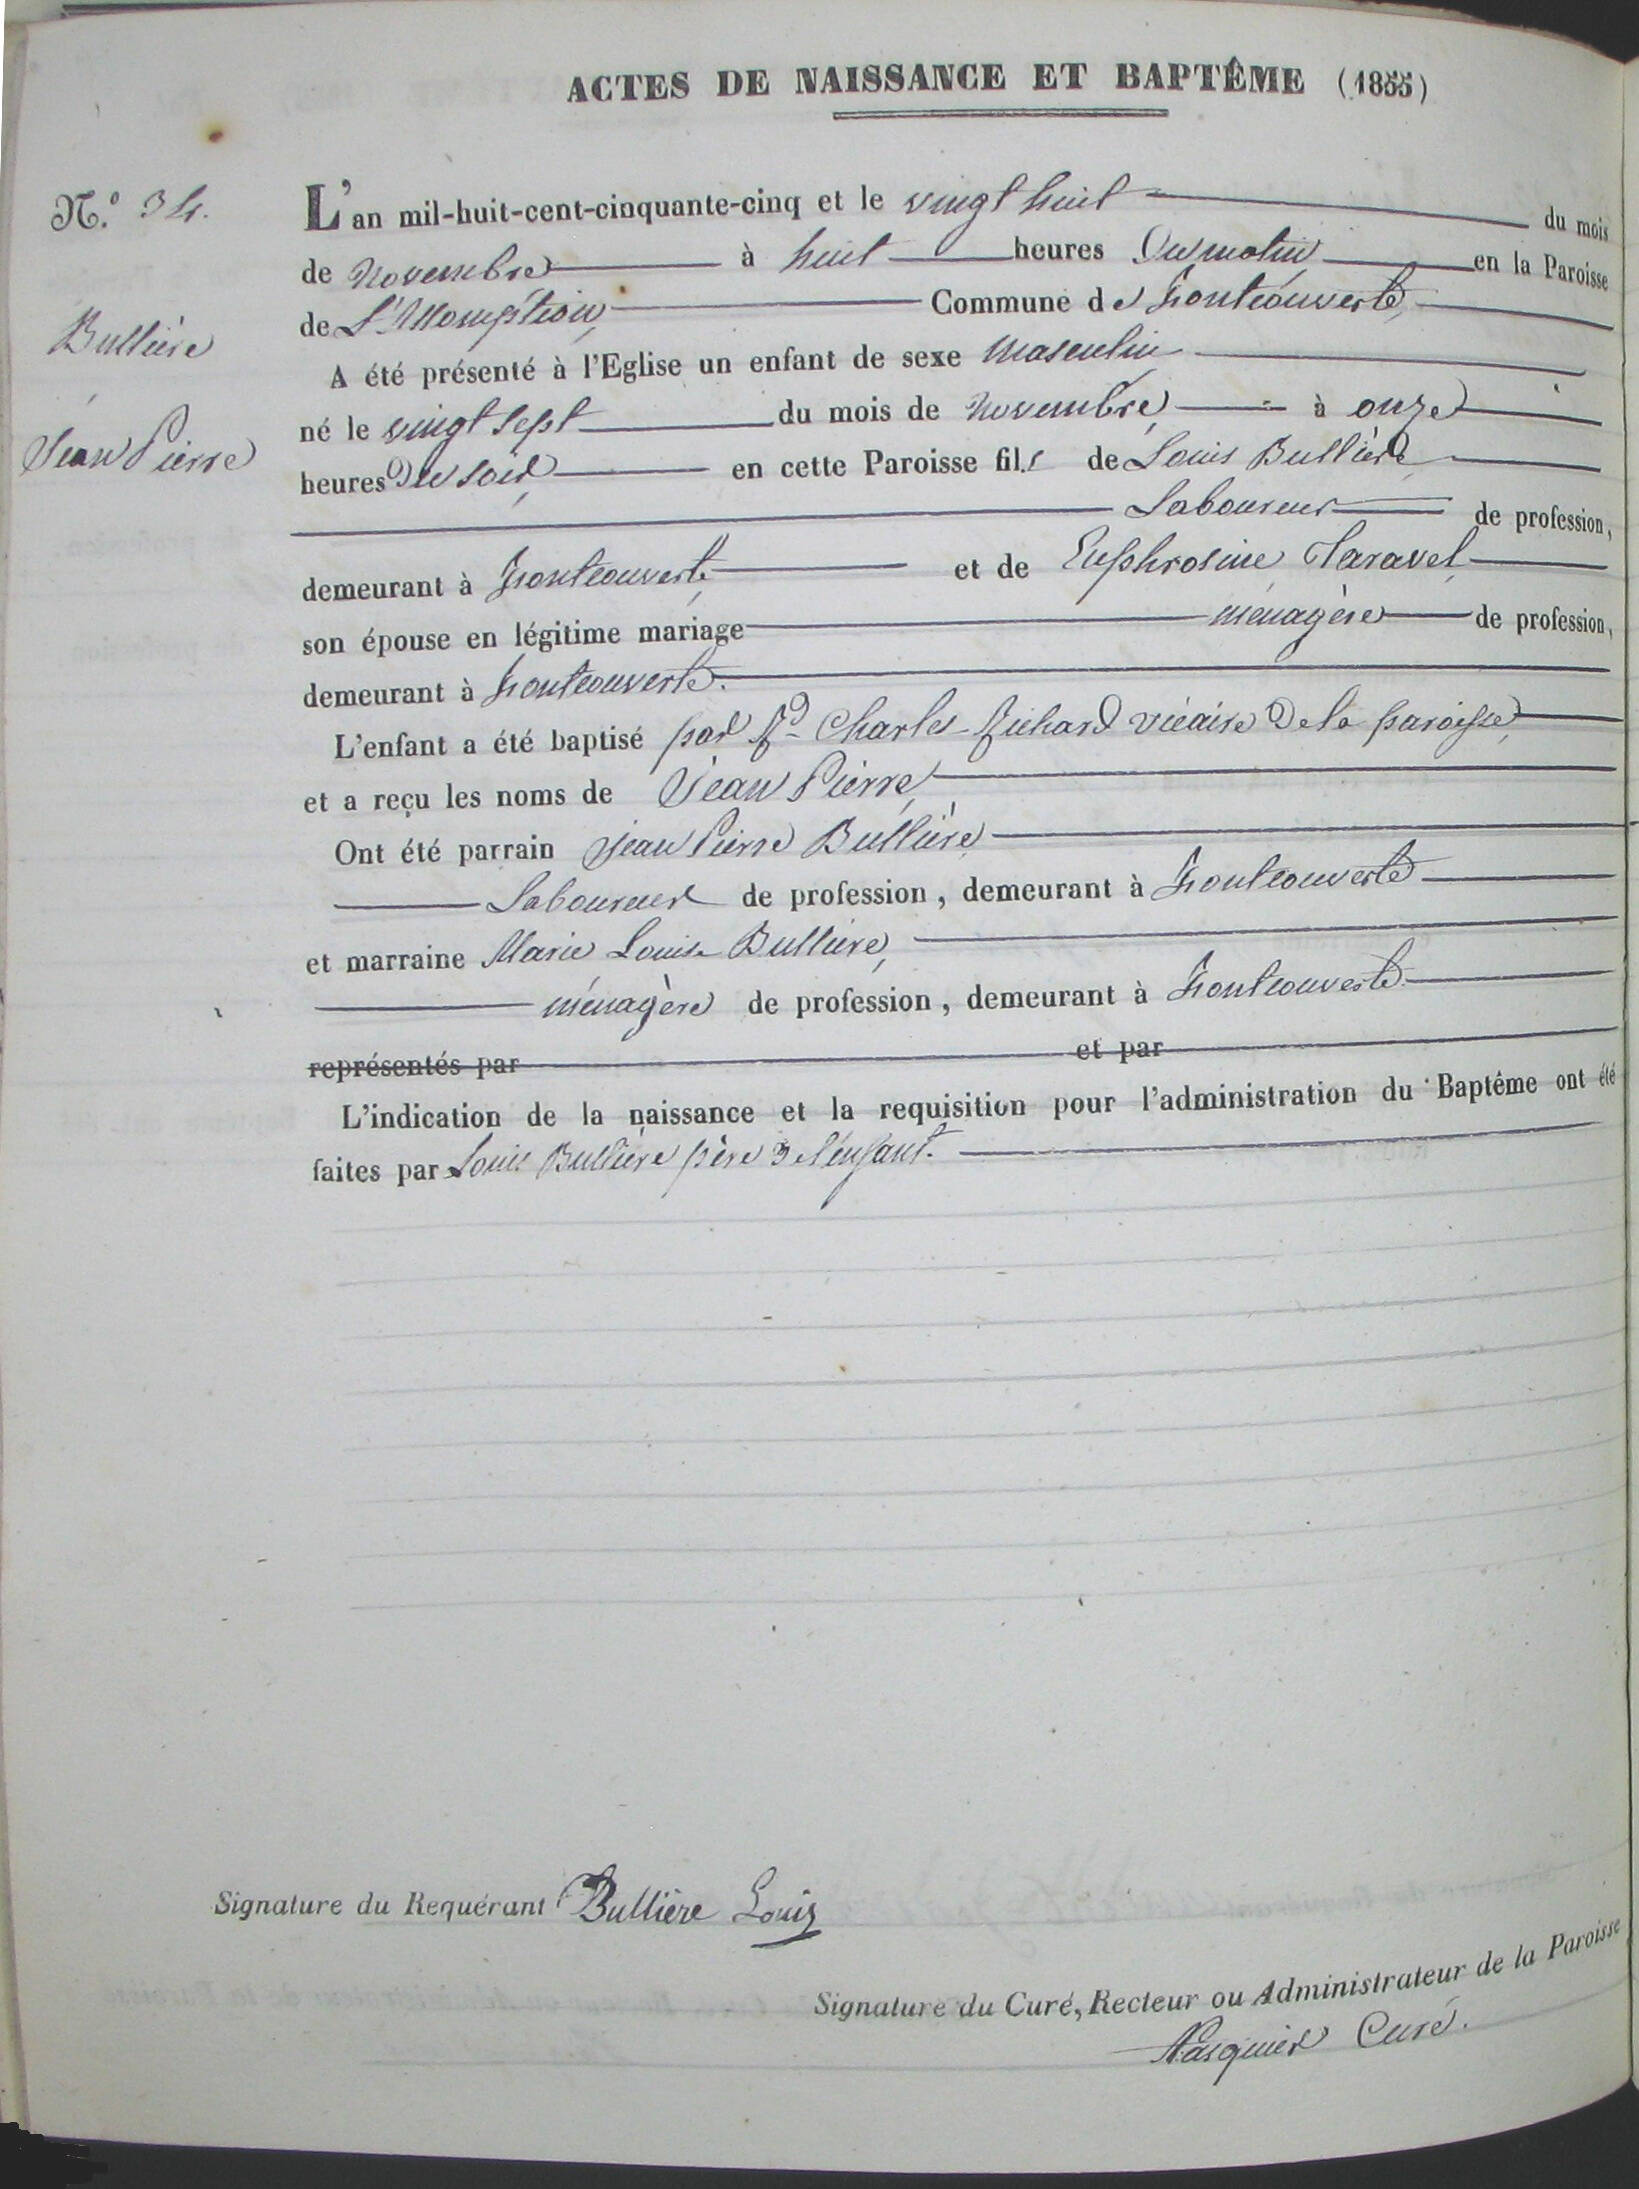 ACTES DE NAISSANCE ET BAPTÊME (1855)
N.º 34.
L'an mil-huit-cent-cinquante-cinq et le vingt huit du mois
de Novembre à huit heures du matin en la Paroisse
de L'Assomption, Commune de Fontcouverte,
Bullière
A été présenté à l'Eglise un enfant de sexe masculin
né le vingt sept du mois de novembre, à onze
Jean Pierre
heures du soir, en cette Paroisse fils de Louis Bullière
Laboureur de profession,
demeurant à Fontcouverte, et de Euphrosine Taravel
son épouse en légitime mariage ménagère de profession,
demeurant à Fontcouverte.
L'enfant a été baptisé par Rd Charles Richard vicaire de la paroisse,
et a reçu les noms de Jean Pierre,
Ont été parrain Jean Pierre Bullière,
Laboureur de profession, demeurant à Fontcouverte
et marraine Marie Louise Bullière,
ménagère de profession, demeurant à Fontcouverte.
représentés par et par
L'indication de la naissance et la requisition pour l'administration du Baptême ont été
faites par Louis Bullière père de l'enfant.
Signature du Requérant Bullière Louis
Signature du Curé, Recteur ou Administrateur de la Paroisse
Pasquier Curé.